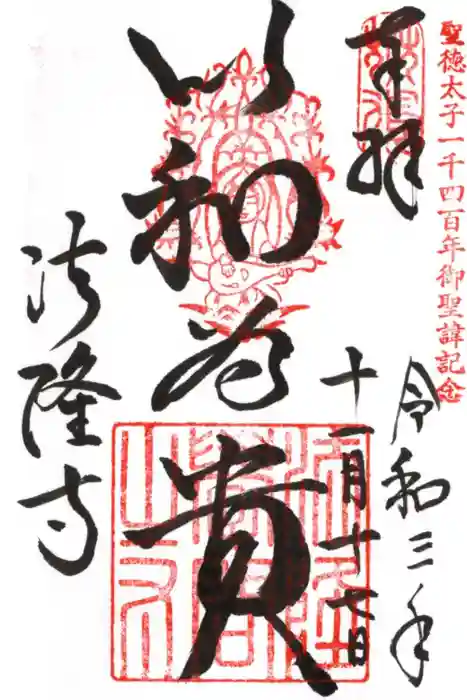 聖徳太子一千四百年御聖諱記念
奉拝
令和三年
十一月十七日
以和為貴
法隆寺